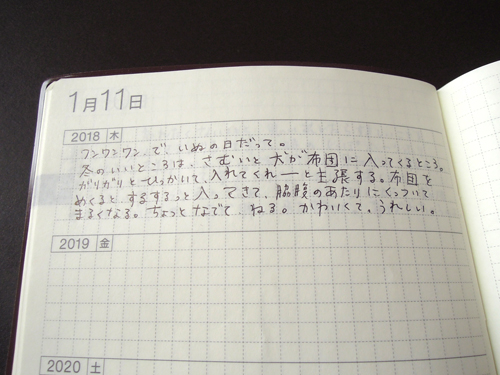 1月11日
2018 木
ワンワンワン で、いぬの日だって。
冬のいいところは、さむいと犬が布団に入ってくるところ。
ガリガリとひっかいて、入れてくれーーと主張する。布団を
めくると、するするっと入ってきて、脇腹のあたりにくっついて
まるくなる。ちょっとなでて、ねる。かわいくて、うれしい。
2019 金
2020 土